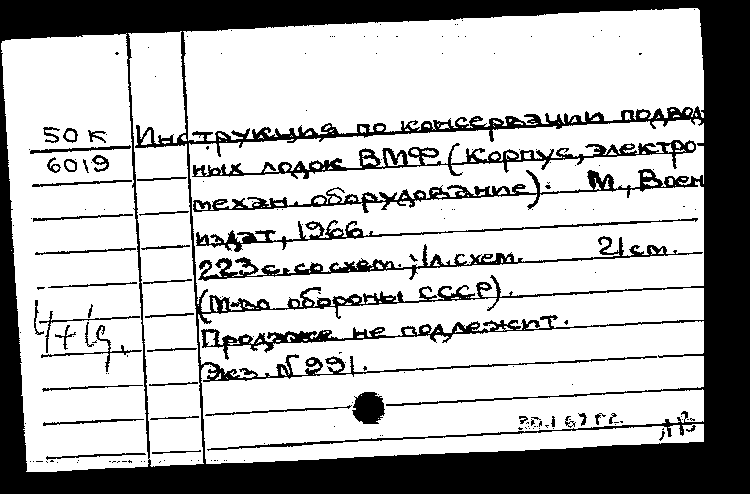 50 К Инструкция по консервации подвод-
6019 ных лодок ВМФ. (Корпус, электро-
механ. оборудование). М., Воен
издат, 1966.
223 с. со схем.; 1 л. схем. 21 см.
(М-во обороны СССР).
Продаже не подлежит.
Экз. N 991.